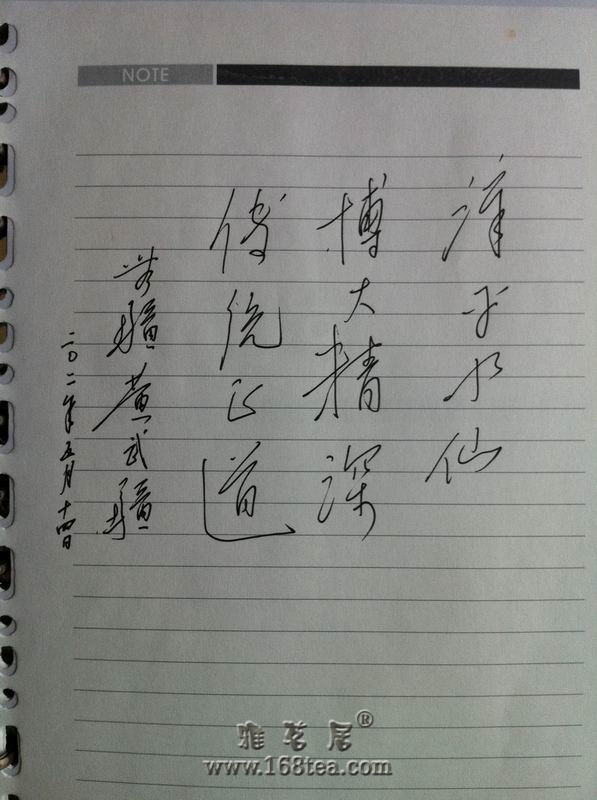 NOTE
漳平水仙
博大精深
传统正道
茗疆黄武疆
二〇一二年五月十四日
雅茗居®
www.168tea.com